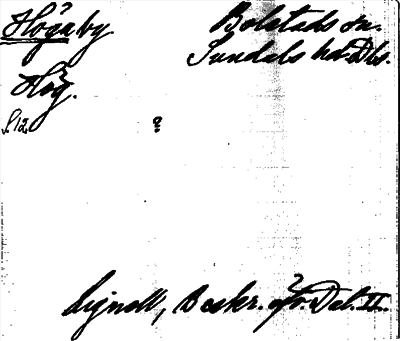 Högaby Bolstads sn.
Sundals hd. Dls.
Hög.
S. 12.
?
Lignell, Beskr. öfv. Dal. II.